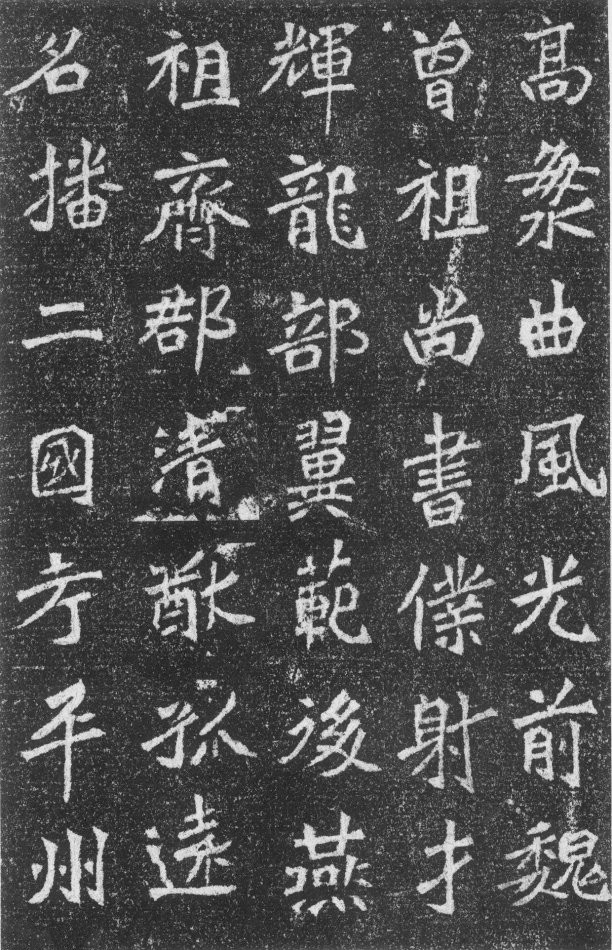 高衆曲風光前魏
曾祖尚書僕射才
輝龍部翼範後燕
祖齊郡清猷孤遠
名播二國考平州